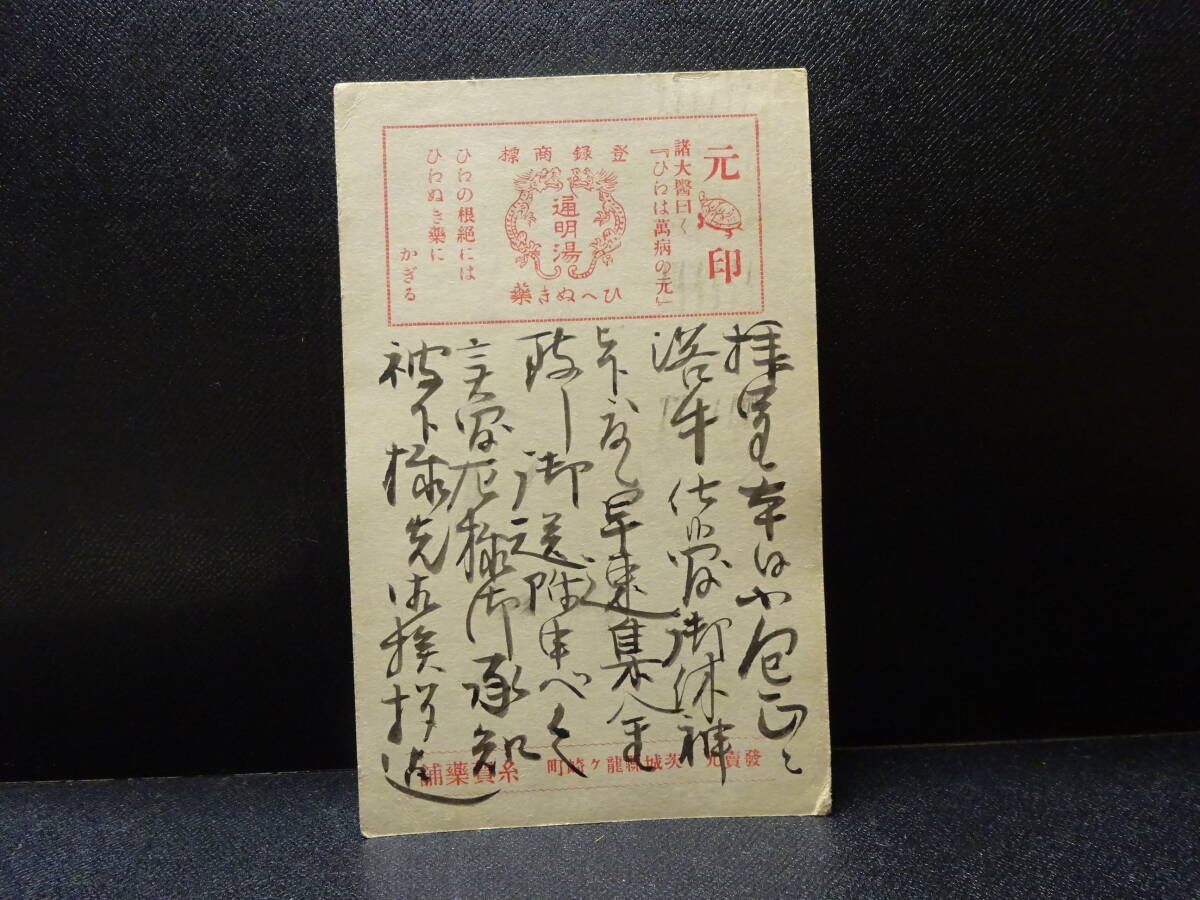 元
印
諸大醫曰く
『ひえは萬病の元』
登録商標
通明湯
ひえぬき藥
ひえの根絶には
ひえぬき藥に
かぎる
拝啓本日小包正ニ
落手仕候間御休神
下度候早速集金
致し御送附申べく
候間左様御承知
被下様先は御挨拶迄
發賣元
茨城縣龍ヶ崎町
糸賀藥舖